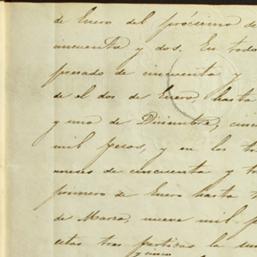 de Enero del próccsimo de
cincuenta y dos. En todo
pesado de cincuenta y
de el dos de Enero, hasta
y uno de Diciembre, cinco
mil pesos, y en los tres
meses de cincuenta y tres
primero de Enero hasta
de Marzo, nueve mil p
estas tres partidas la sum